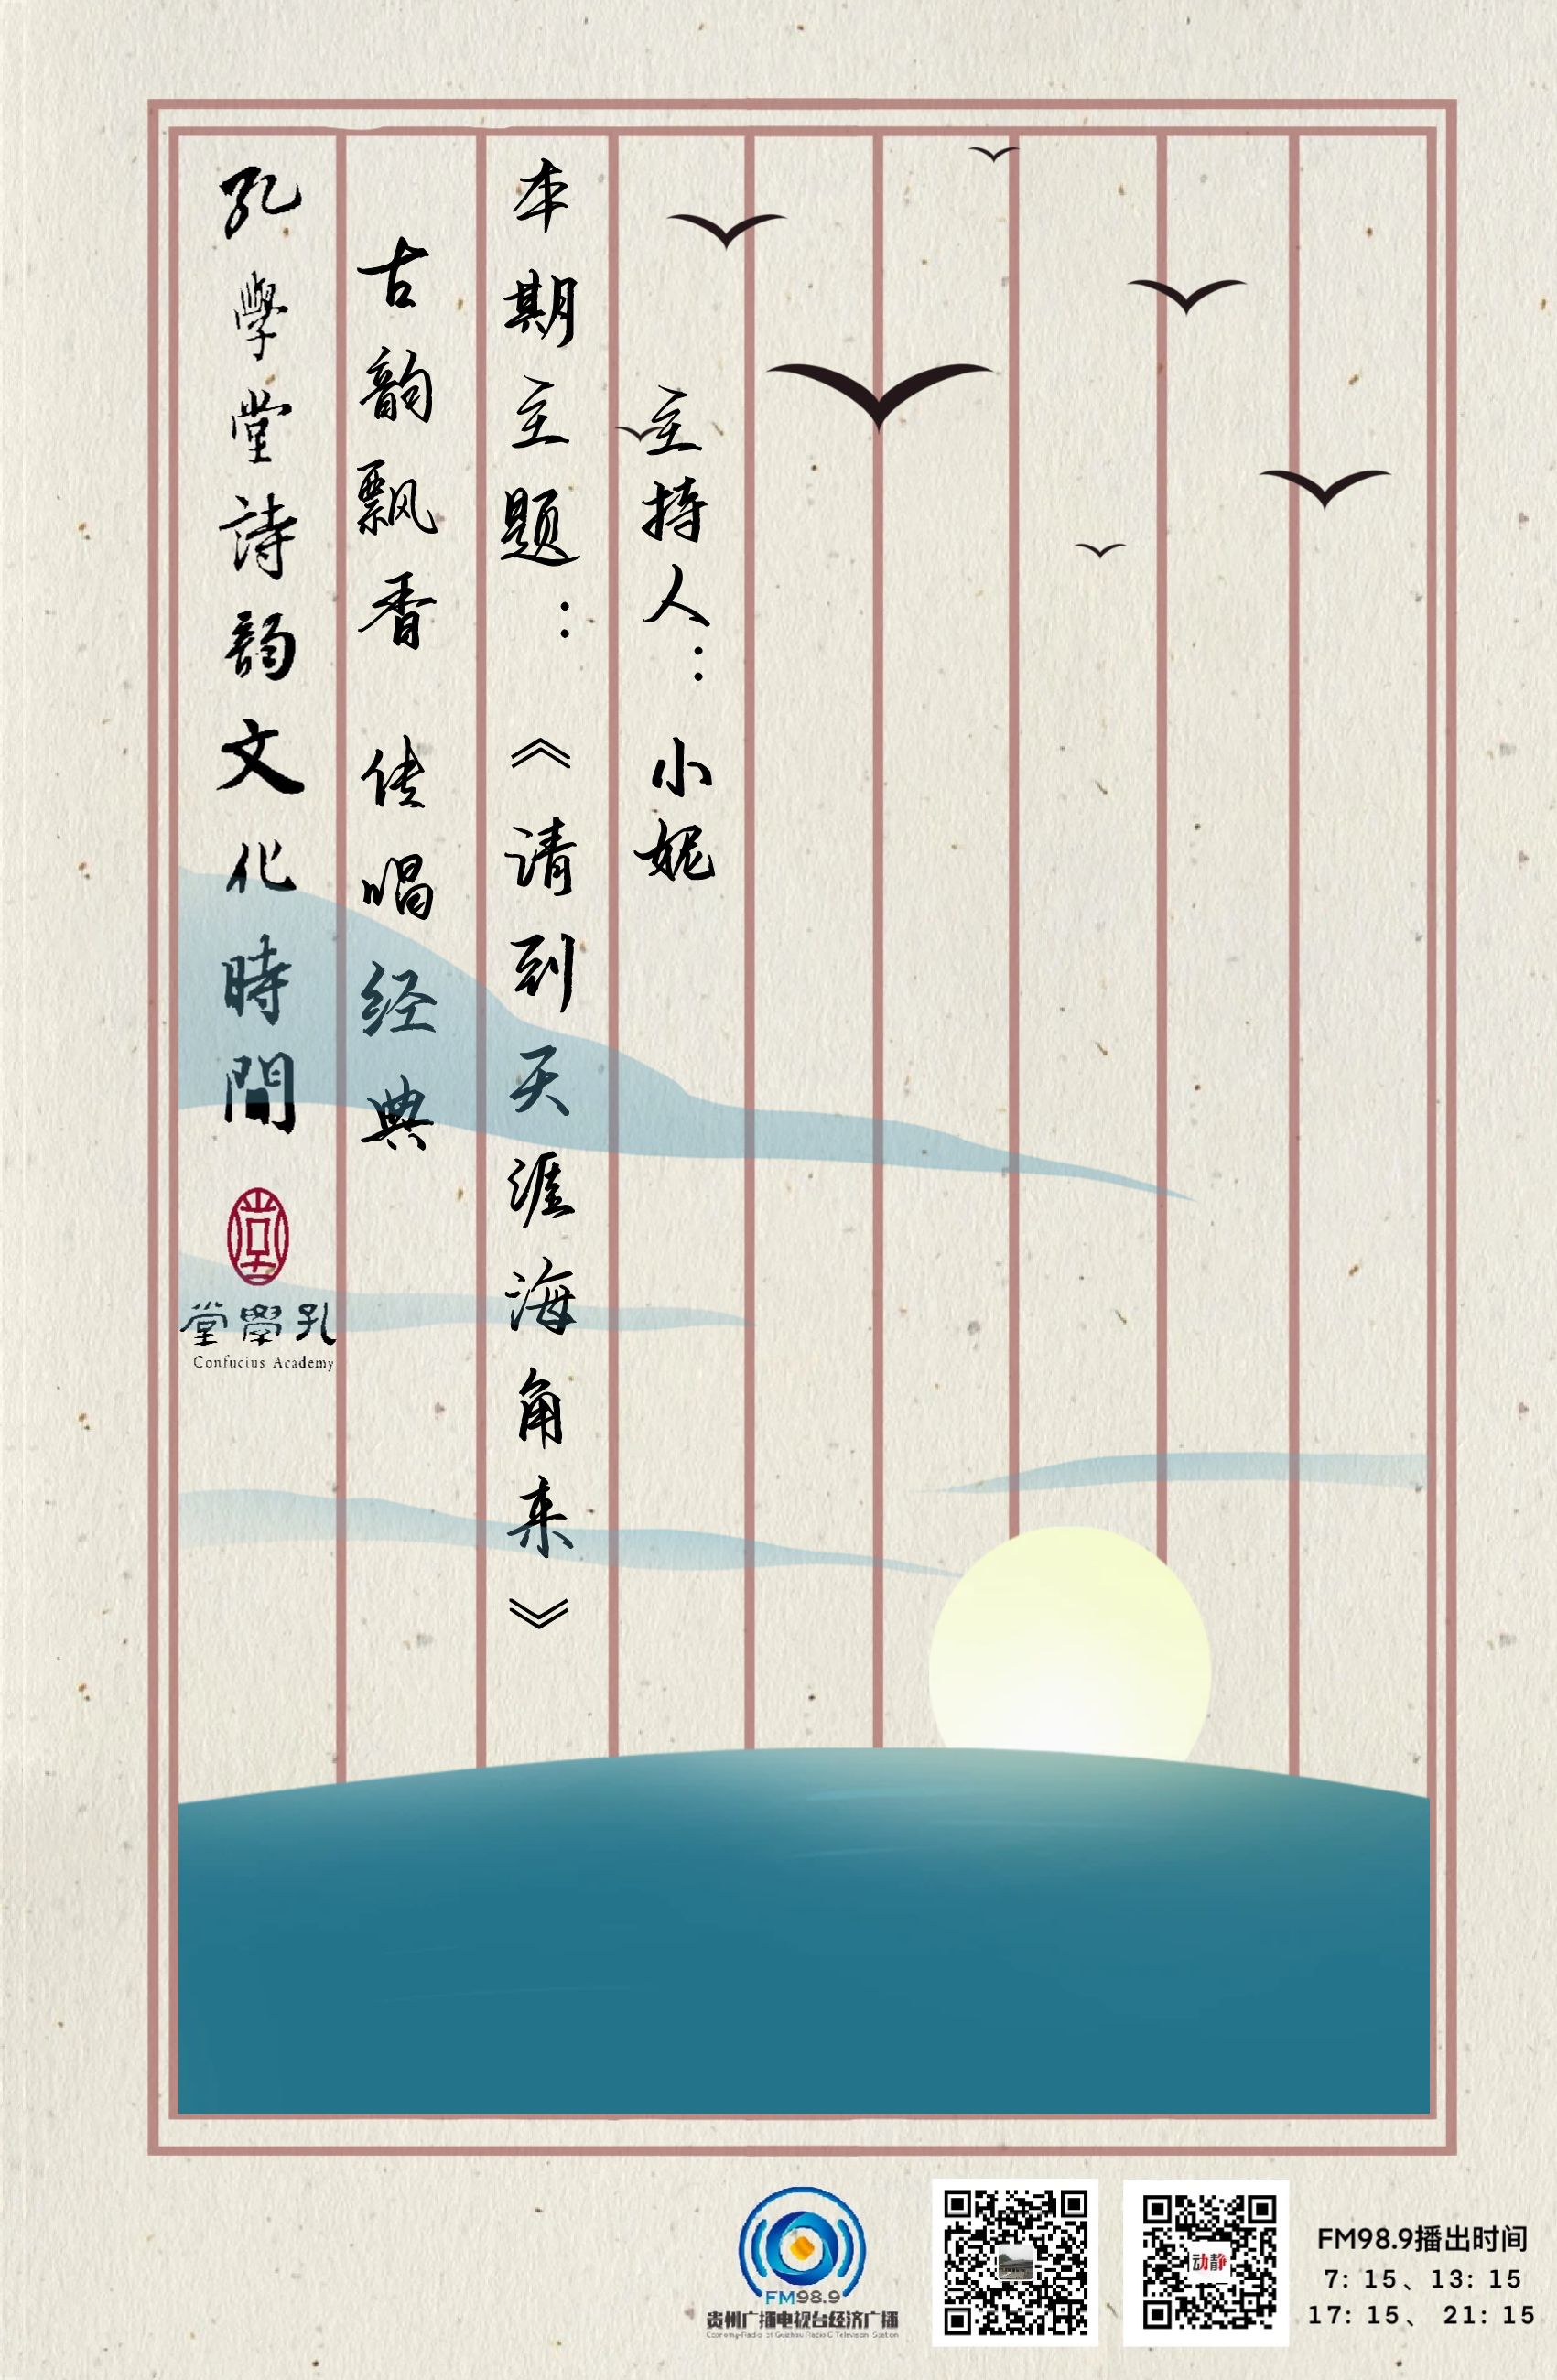 孔學堂詩韵文化時間
古韵飘香 传唱经典
本期主题：《请到天涯海角来》
主持人：小妮
堂學孔
Confucius Academy
FM98.9
贵州广播电视台经济广播
动静
FM98.9播出时间
7: 15、13: 15
17: 15、 21: 15